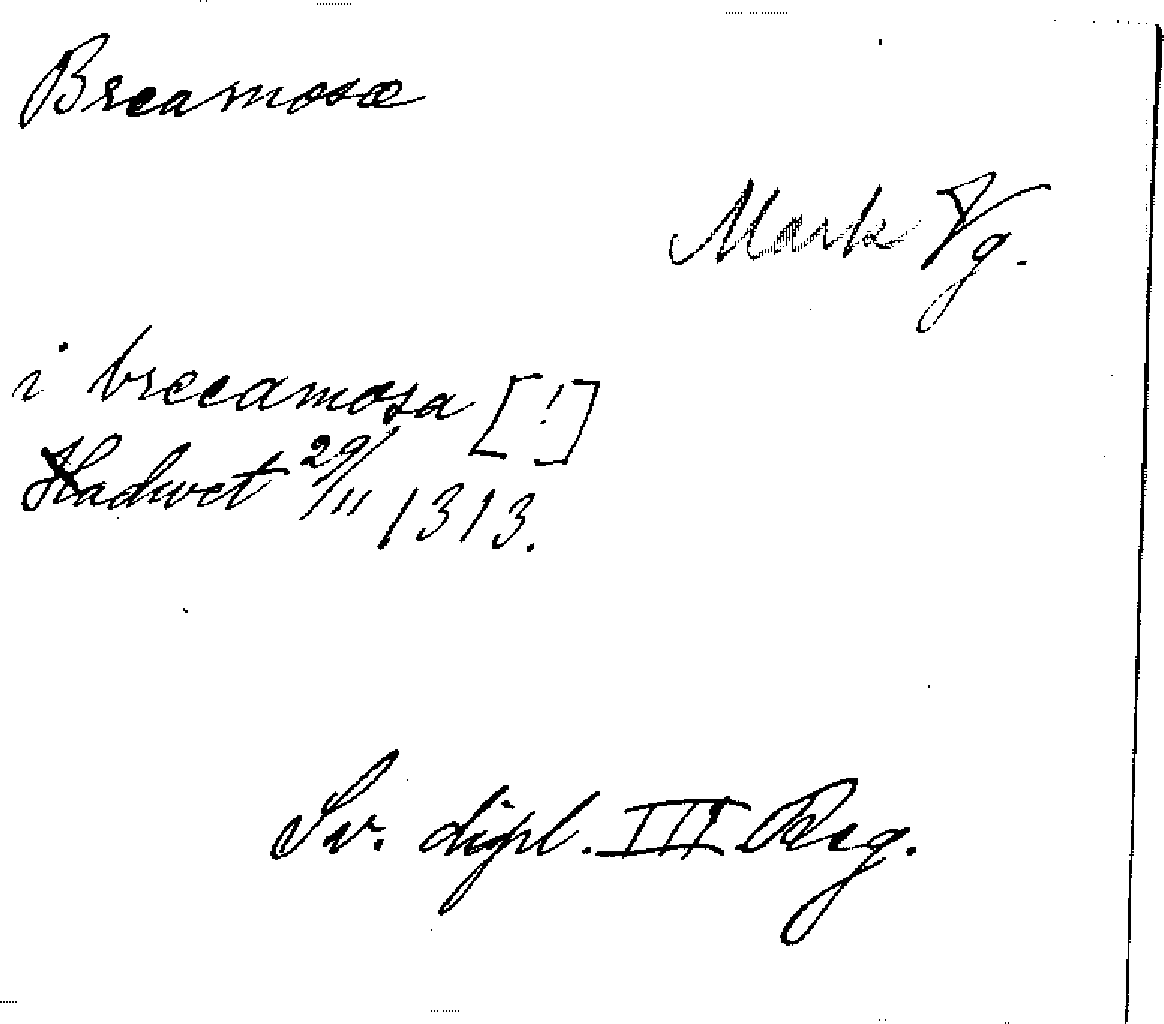 Breamosa
Mark Vg.
i breeamosa [!]
Hadwet 29/11 1313.
Sv. dipl. III Reg.